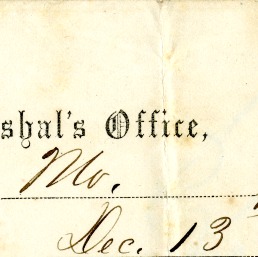 shal's Office,
Mo.
Dec. 13